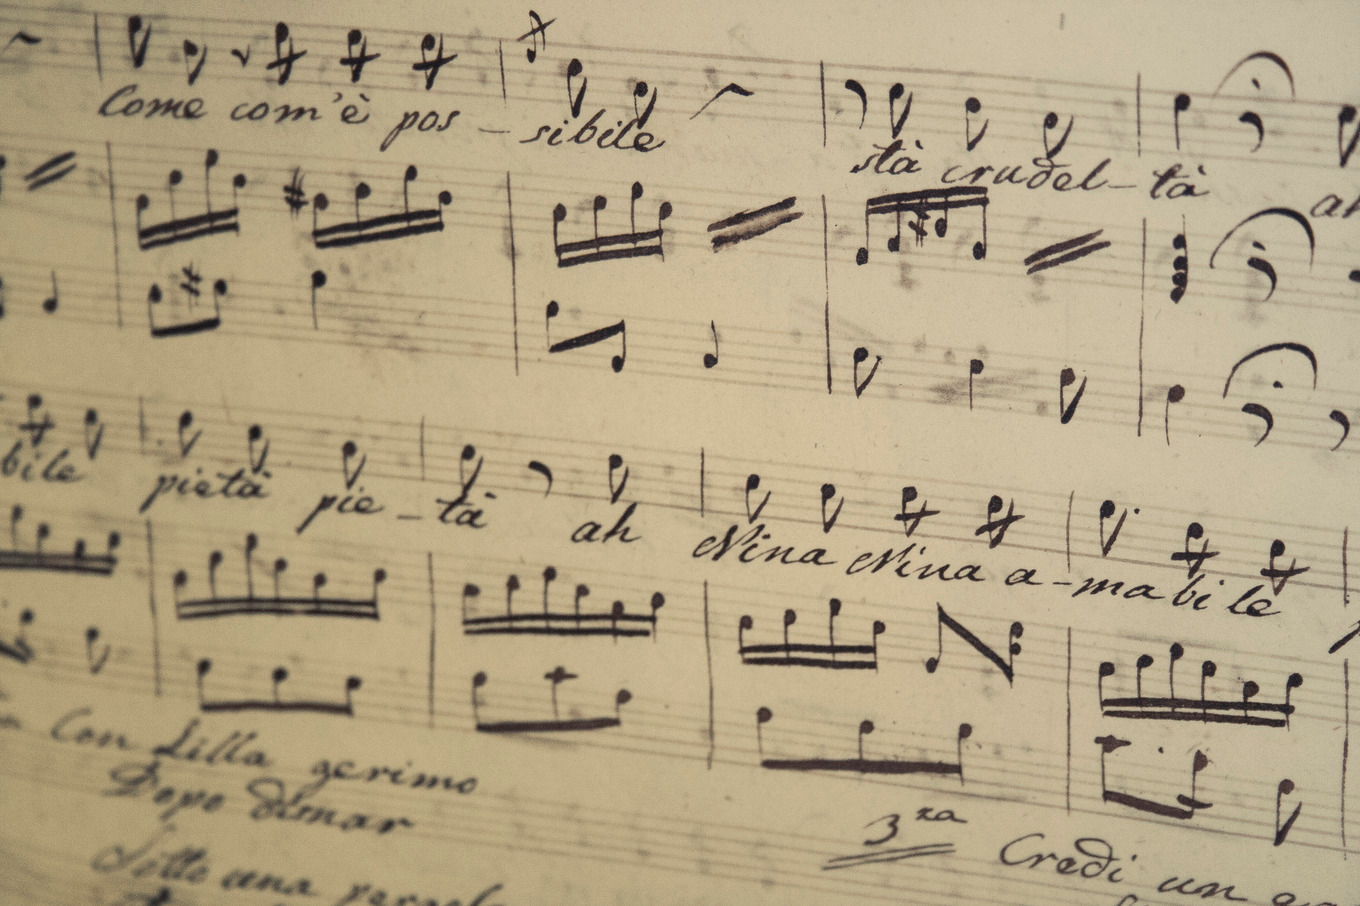 Come com'è pos - sibile stà crudel - tà ah
bile pietà pie - tà ah Nina Nina a - ma bi le
Con Lilla gerimo
Dopo disnar
Sotto una
3za Credi un